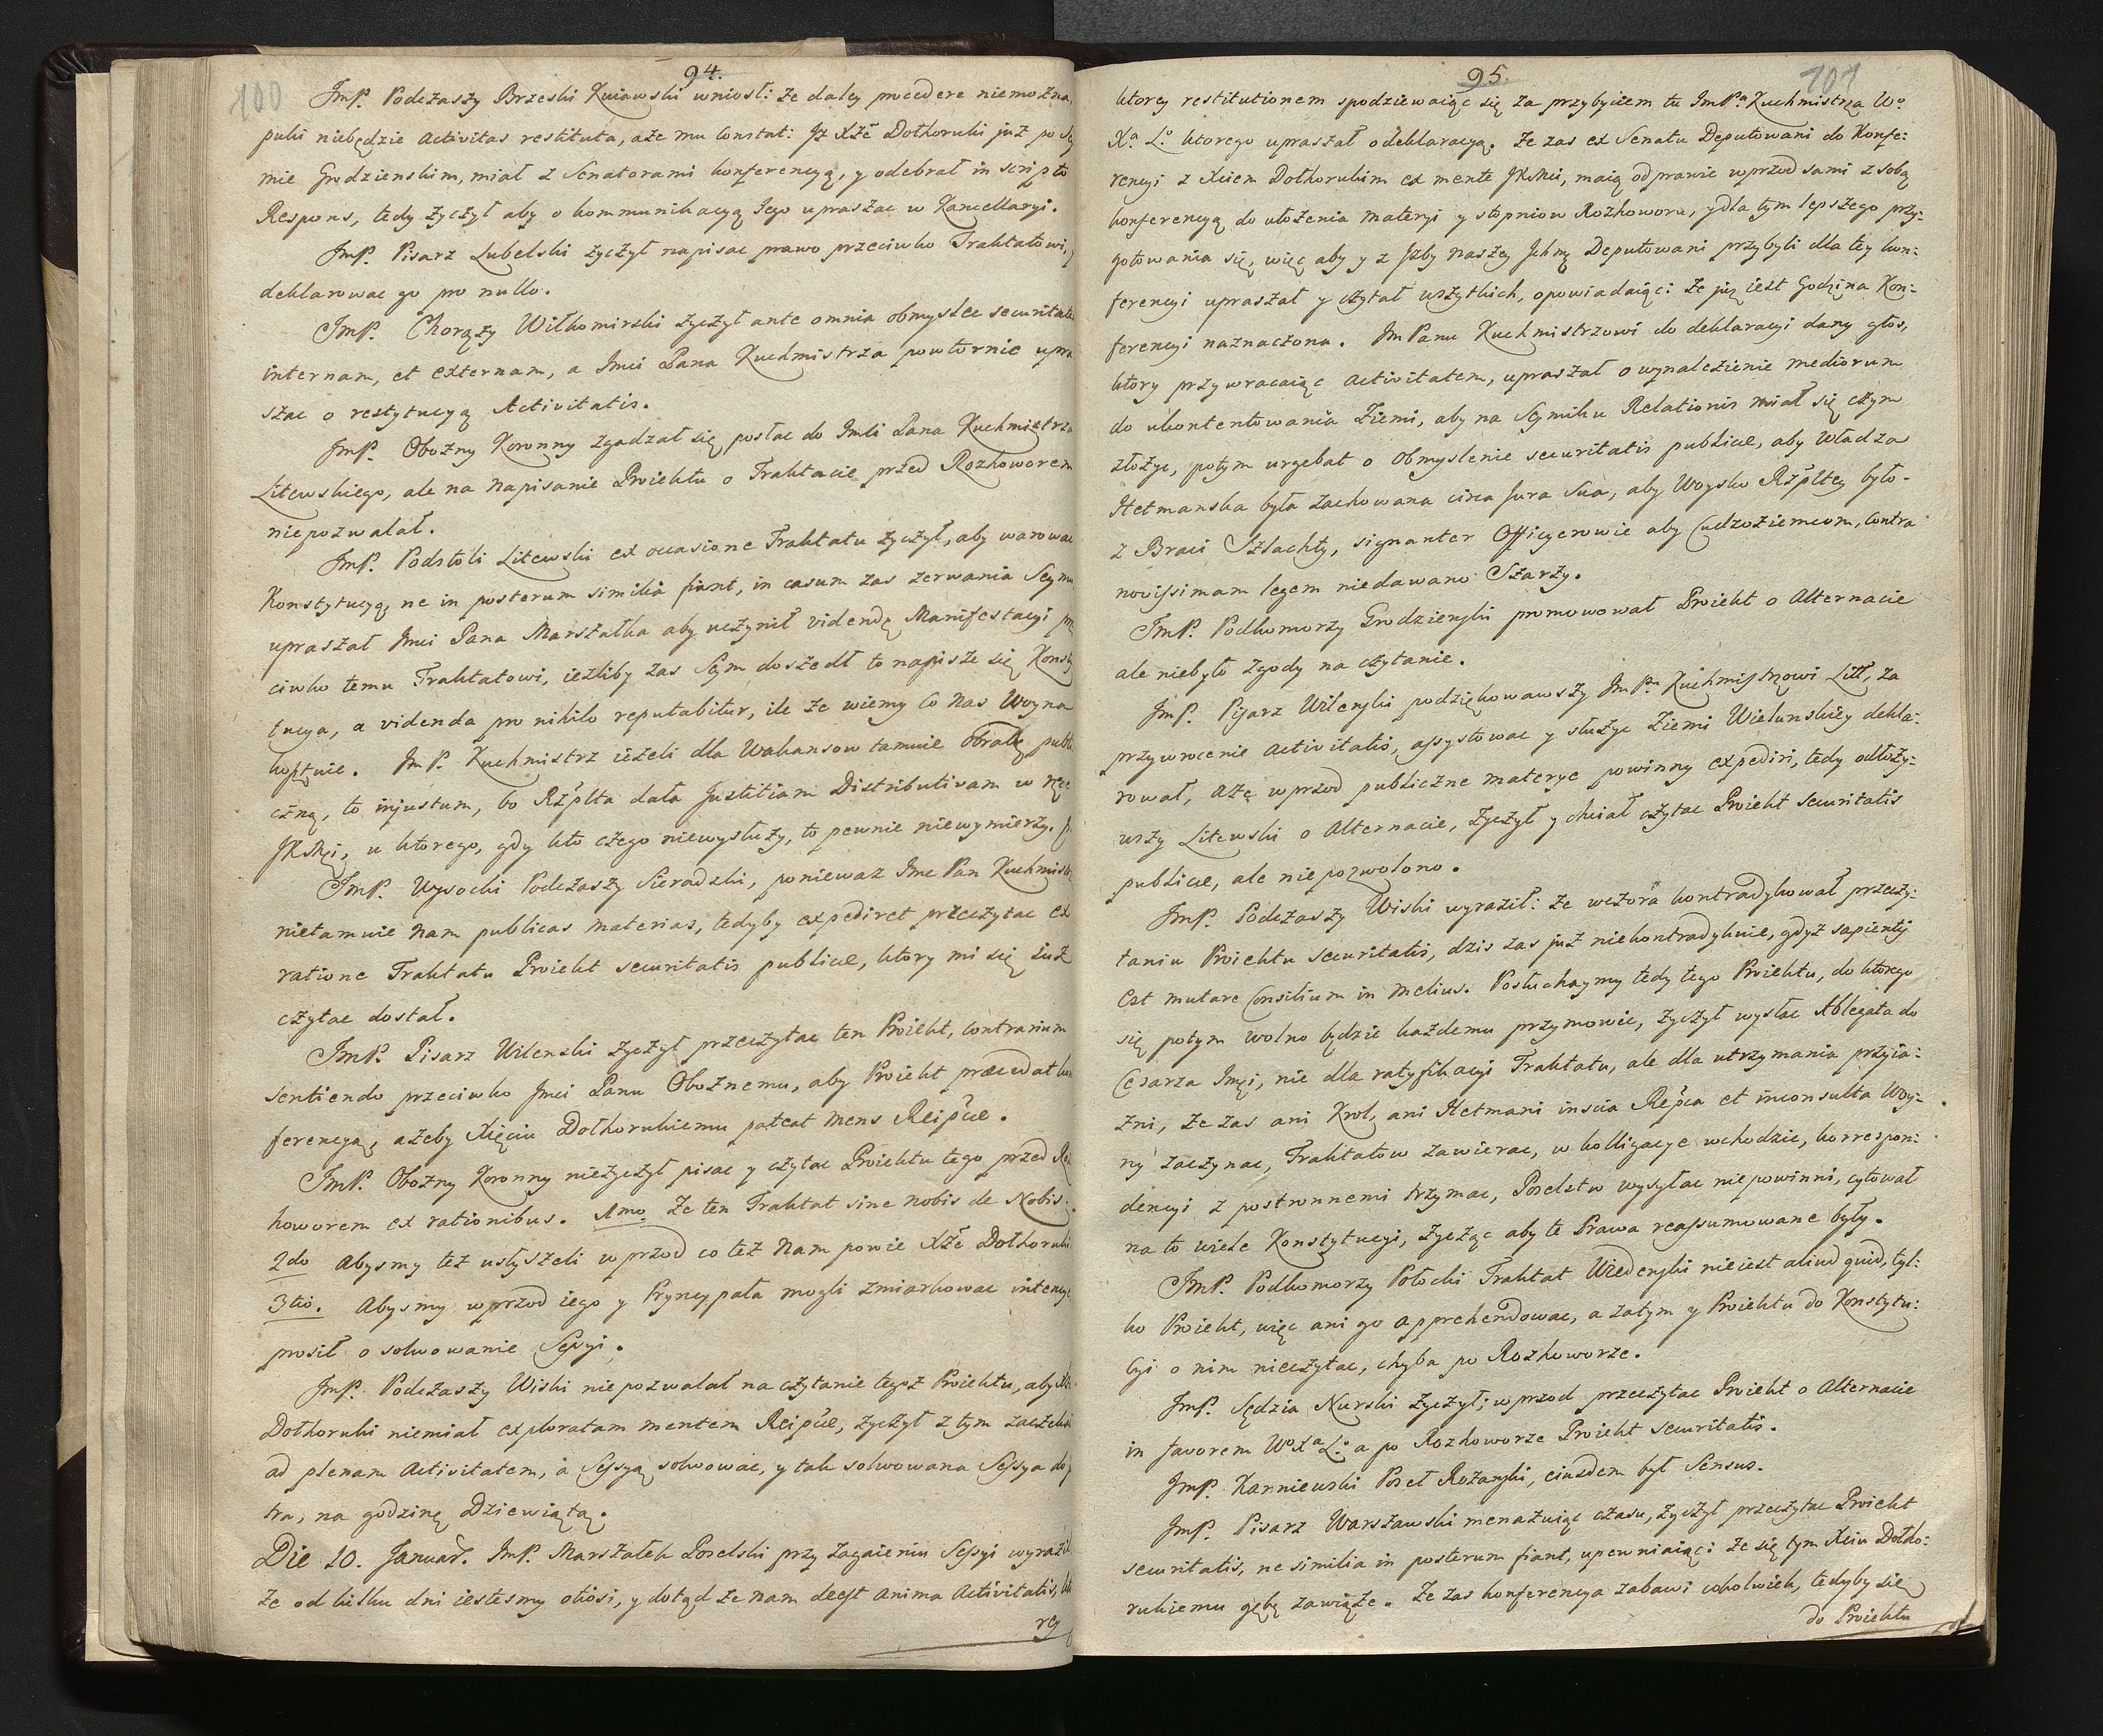 94.
100
JmP. Podczaszy Brzeski Kuiawski wniosł: że daley procedere niemożna,
puki niebędzie activitas restituta, aże mu constat: Jż Xże Dołhoruki już po Sey
mie Grodzienskim, miał z Senatorami konferencyą, y odebrał in scripto
Respons, tedy życzył aby o kommunikacyą Jego upraszac w Kancellaryi.
JmP. Pisarz Lubelski życzył napisac prawo przeciwko Traktatowi, y
deklarowac go pro nullo.
JmP. Chorąży Wiłkomirski życzył ante omnia obmyslec securitatem
internam, et externam, a Jmci Pana Kuchmistrza powtornie upra
szac o restytucyą Activitatis.
JmP. Obożny Koronny zgadzał się posłac do Jmci Pana Kuchmistrza
Litewskiego, ale na napisanie Proiektu o Traktacie przed Rozhoworem
niepozwalał.
JmP. Podstoli Litewski ex occasione Traktatu życzył, aby warowac
Konstytucyą, ne in posterum similia fiant, in casum zas zerwania Seymu
upraszał Jmci Pana Marszałka aby uczynił videndę Manifestacyi prze
ciwko temu Traktatowi, iezliby zas Seym doszedł to napisze się Konsty
tucya, a videnda pro nihilo reputabitur, ile że wiemy co nas Woyna
kosztuie. JmP. Kuchmistrz ieżeli dla Wakansow tamuie obradę publi
czną, to injustum, bo Rzplta dała Justitiam Distributivam w ręce
JKMci, u ktorego, gdy kto czego niewysłuży, to pewnie niewymierzy.
JmP. Wysocki Podczaszy Sieradzki, poniewaz Jmc Pan Kuchmistrz
nietamuie nam publicas materias, tedyby expediret przeczytac ex
ratione Traktatu Proiekt securitatis publicæ, ktory mi się iuż
czytac dostał.
JmP. Pisarz Wilenski życzył przeczytac ten Proiekt, contrarium
sentiendo przeciwko Jmci Panu Obożnemu, aby Proiekt præcedat kon
ferencyą, ażeby Xięciu Dołhorukiemu pateat mens Reipcæ.
JmP. Obożny Koronny nieżyczył pisac y czytac Proiektu tego przed Roz
howorem ex rationibus. 1mo Ze ten Traktat sine nobis de Nobis.
2do Abysmy też usłyszeli wprzod co też Nam powie Xże Dołhoruki
3tio. Abysmy wprzod iego y Pryncypała mogli zmiarkowac intencye
prosił o solwowanie Sessyi.
JmP. Podczaszy Wiski niepozwalał na czytanie tegoż Proiektu, aby Xże
Dołhoruki niemiał exploratam mentem Reipcæ, życzył z tym zaczekac
ad plenam Activitatem, a Sessyą solwowac, y tak solwowana Sessya do ju
tra, na godzinę Dziewiątą.
Die 10. Januar. JmP. Marszałek Poselski przy zagaieniu Sessyi wyraził
że od kilku dni iestesmy otiosi, y dotąd że nam deest anima Activitatis, kto
rey
95.
101
ktorey restitutionem spodziewaiąc się za przybyciem tu JmPa Kuchmistrza Wo
Xa Lo ktorego upraszał o deklaracyą. Że zas ex Senatu Deputowani do Konfe:
rencyi z Xciem Dołhorukim ex mente JKMci, maią odprawic wprzod sami z sobą
konferencyą do ułożenia materyi y stopniow Rozhoworu, y dla tym lepszego przy:
gotowania się, więc aby y z Jzby naszey Jchmę Deputowani przybyli dla tey kon:
ferencyi upraszał y czytał wszytkich, opowiadaiąc: że już iest Godzina Kon:
ferencyi naznaczona. JmPanu Kuchmistrzowi do deklaracyi dany głos,
ktory przywracaiąc activitatem, upraszał o wynalezienie mediorum
do ukontentowania Ziemi, aby na Seymiku Relationis miał się czym
złożyc, potym urgebat o obmyslenie securitatis publicæ, aby Władza
Hetmanska była zachowana circa Jura Sua, aby Woysko Rzpltey było
z Braci Szlachty, signanter Officyerowie aby Cudzoziemcom, contra
novissimam legem niedawano Szarży.
JmP. Podkomorzy Grodzienski promowował Proiekt o Alternacie
ale niebyło zgody na czytanie.
JmP. Pisarz Wilenski podziękowawszy JmPu Kuchmistrzowi Litt, za
przywrocenie activitatis, assystowac y służyc Ziemi Wielunskiey dekla:
rował, Aże wprzod publiczne materye powinny expediri, tedy odłoży:
wszy Litewski o Alternacie, życzył y chciał czytac Proiekt securitatis
publicæ, ale niepozwolono.
JmP. Podczaszy Wiski wyraził: że wczora kontradykował przeczy:
taniu Proiektu securitatis, dzis zas już niekontradykuie, gdyż sapientis
est mutare Consilium in melius. Posłuchaymy tedy tego Proiektu, do ktorego
się potym wolno będzie każdemu przymowic, życzył wysłac Ablegata do
Cesarza Jmci, nie dla ratyfikacyi Traktatu, ale dla utrzymania przyia:
żni, że zas ani Krol, ani Hetmani inscia Repca et inconsulta Woy:
ny zaczynac, Traktatow zawierac, w kolligacye wchodzic, korrespon:
dencyi z postronnemi trzymac, Poselstw wysyłac niepowinni, cytował
na to wiele Konstytucyi, życząc aby te Prawa reassumowane były.
JmP. Podkomorzy Połocki Traktat Wiedenski nieiest aliud quid, tyl:
ko Proiekt, więc ani go apprehendowac, a zatym y Proiektu do Konstytu:
cyi o nim nieczytac, chyba po Rozhoworze.
JmP. Sędzia Nurski życzył; wprzod przeczytac Proiekt o Alternacie
in favorem WoXaLo a po Rozhoworze Proiekt securitatis.
JmP. Karniewski Poseł Rożanski, eiusdem był Sensus.
JmP. Pisarz Warszawski menażuiąc czasu, życzył przeczytac Proiekt
securitatis, ne similia in posterum fiant, upewniaiąc: że się tym Xciu Dołho:
rukiemu gębę zawiąże. Że zas konferencya zabawi cokolwiek, tedyby się
do Proiektu